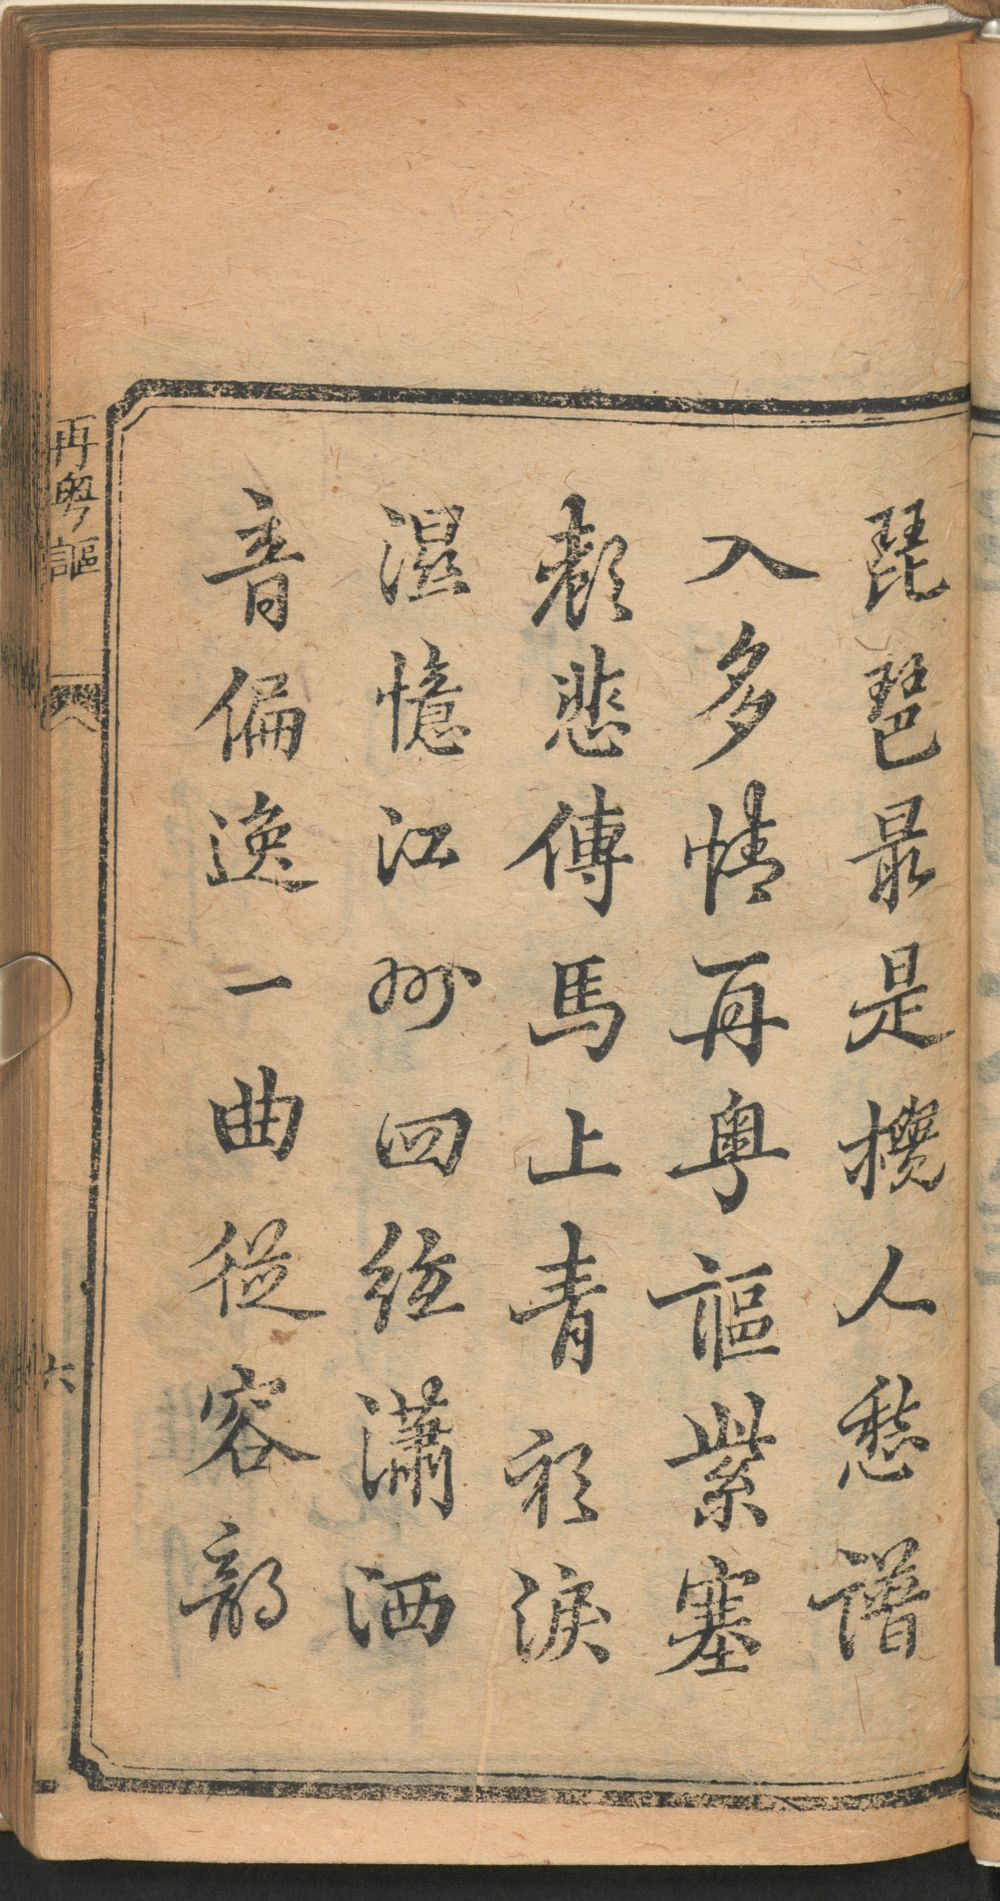 琵琶最是攪人愁譜
入多情再粵謳紫塞
歌悲傳馬上青衫淚
濕憶江州四絃瀟洒
音偏逸一曲從容韵
再粵謳
六